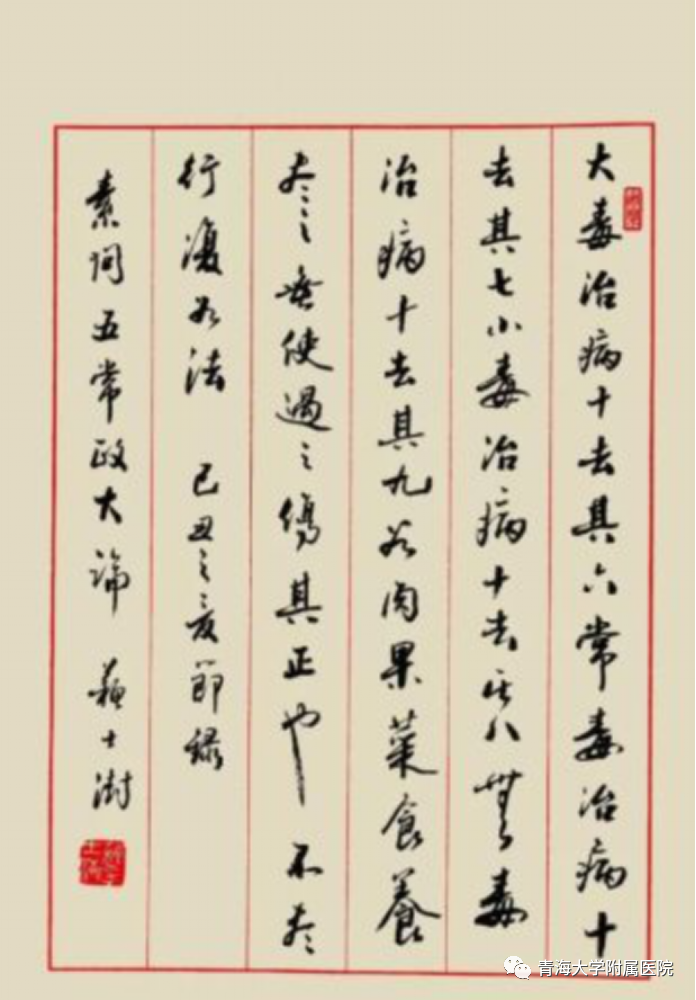 大毒治病十去其六常毒治病十
去其七小毒治病十去其八無毒
治病十去其九谷肉果菜食養
尽之無使過之傷其正也不尽
行復如法 己丑之夏節録
素問五常政大論 蘇士澍
青海大学附属医院